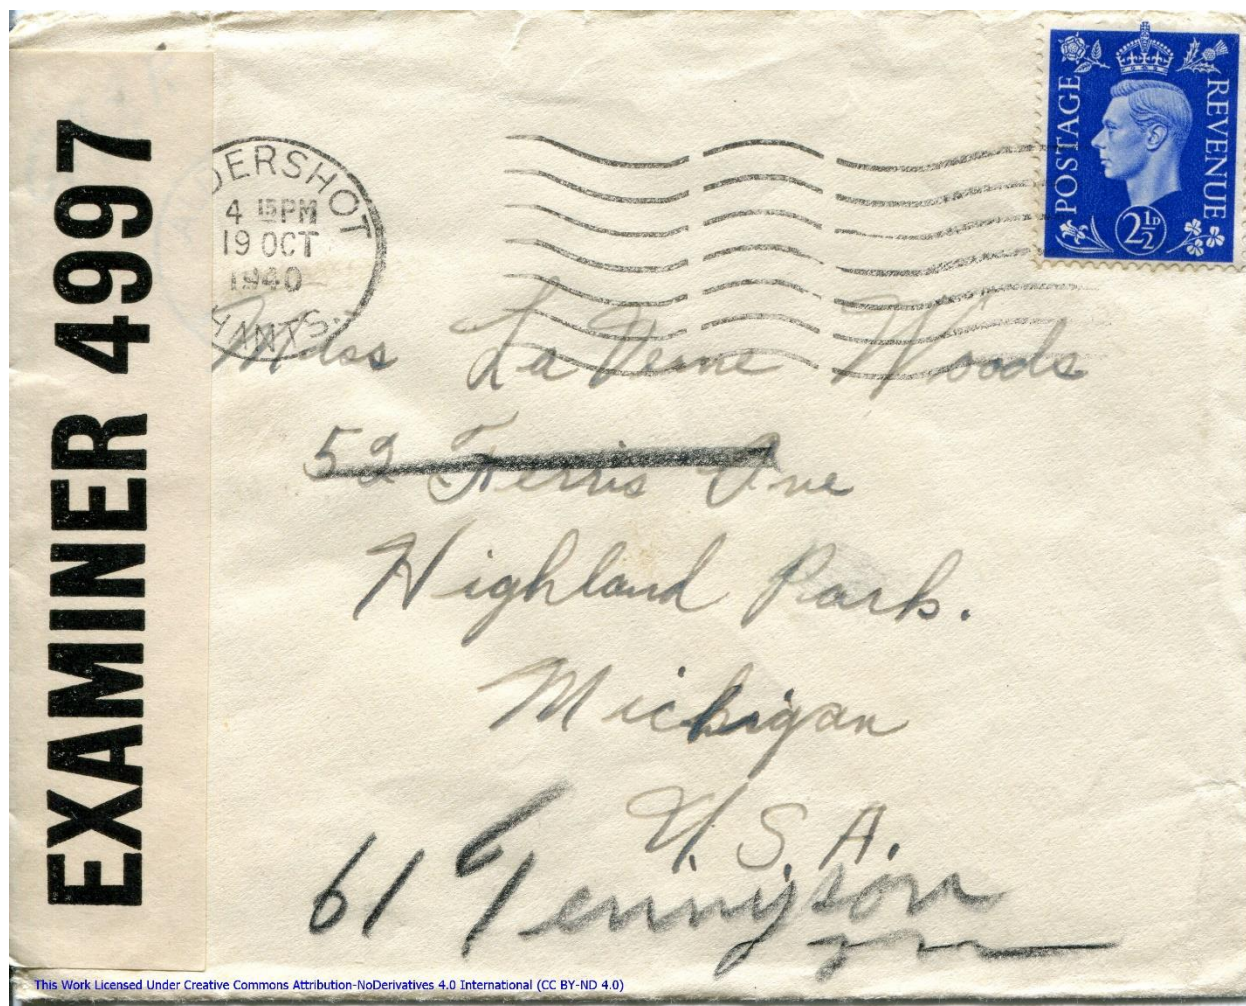 EXAMINER 4997
DERSHOT
4 15 PM
19 OCT
1940
HANTS.
POSTAGE
REVENUE
2½D
Miss LaVerne Woods
52 Ferris Ave
Highland Park.
Michigan
U.S.A.
61 Tennyson
This Work Licensed Under Creative Commons Attribution-NoDerivatives 4.0 International (CC BY-ND 4.0)